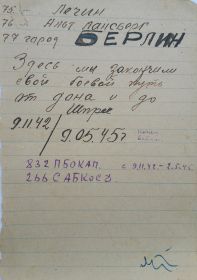 75. Лечин
76 Альт Лансберг
77 город БЕРЛИН
Здесь мы закончили
свой боевой путь
от дона и до
Шпрее
9.11.42 / 9.05.45г
832 ПБОКАП. с 9.11.42-2.5.45
266 САБКОСЗ